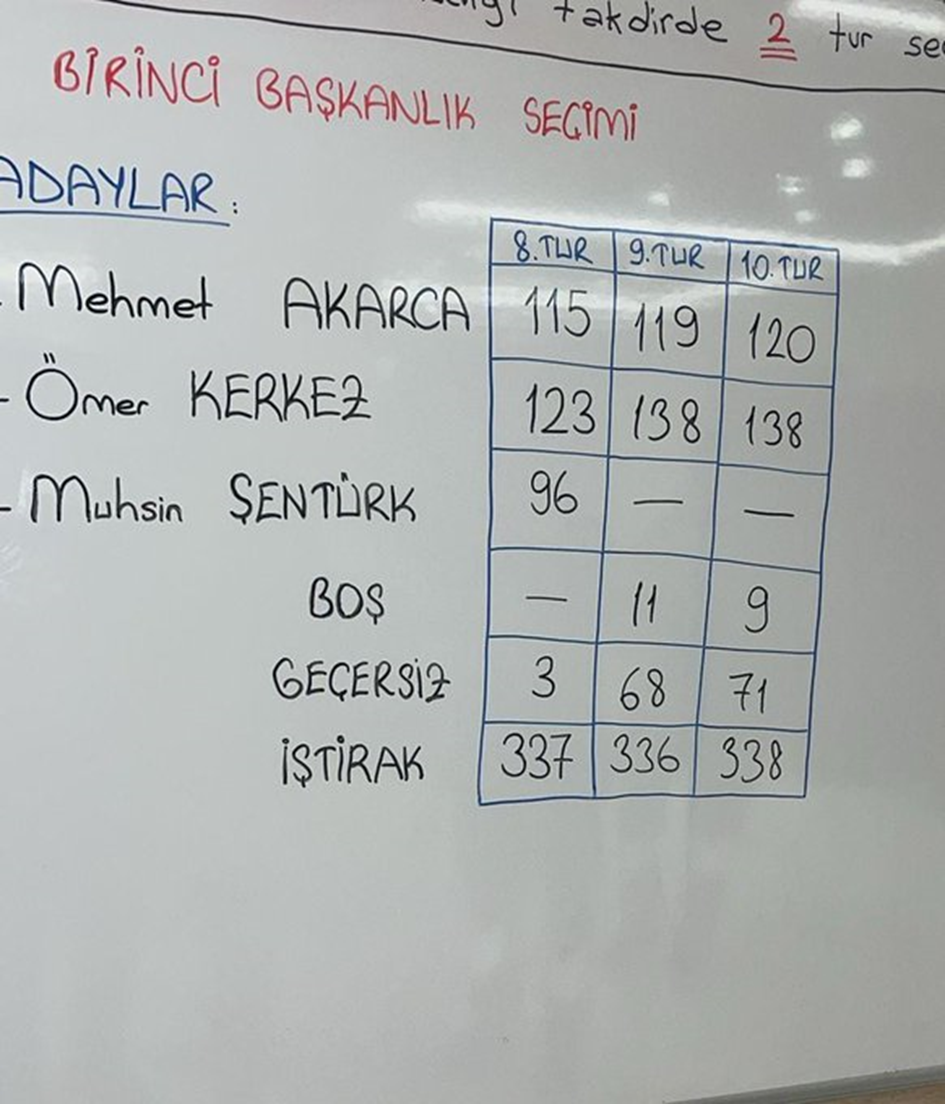 takdirde 2 tur
BİRİNCİ BAŞKANLIK SEÇİMİ
ADAYLAR:
8.TUR 9.TUR 10.TUR
Mehmet AKARCA 115 119 120
- Ömer KERKEZ 123 138 138
- Muhsin ŞENTÜRK 96 — —
BOŞ — 11 9
GEÇERSİZ 3 68 71
İŞTİRAK 337 336 338